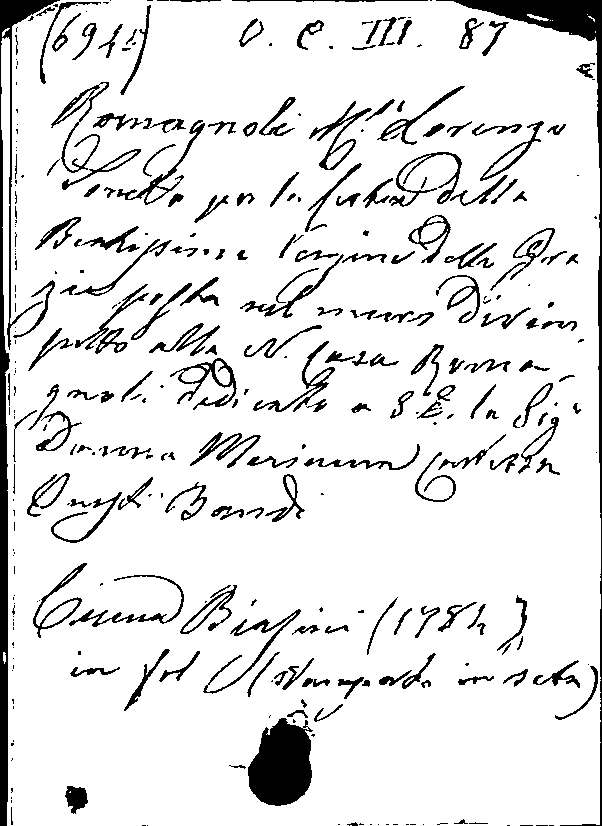 (6945) O. C. III. 87
Romagnoli M.se Lorenzo
Sonetto per la festa della
Beatissima Vergine delle Gra
zie posta sul muro dirim
petto alla N. Casa Roma-
gnoli dedicato a S. E. la Sig.a
Donna Marianna Contessa
Bandi
Cesena Biasini (178
in fol (stampato in seta)